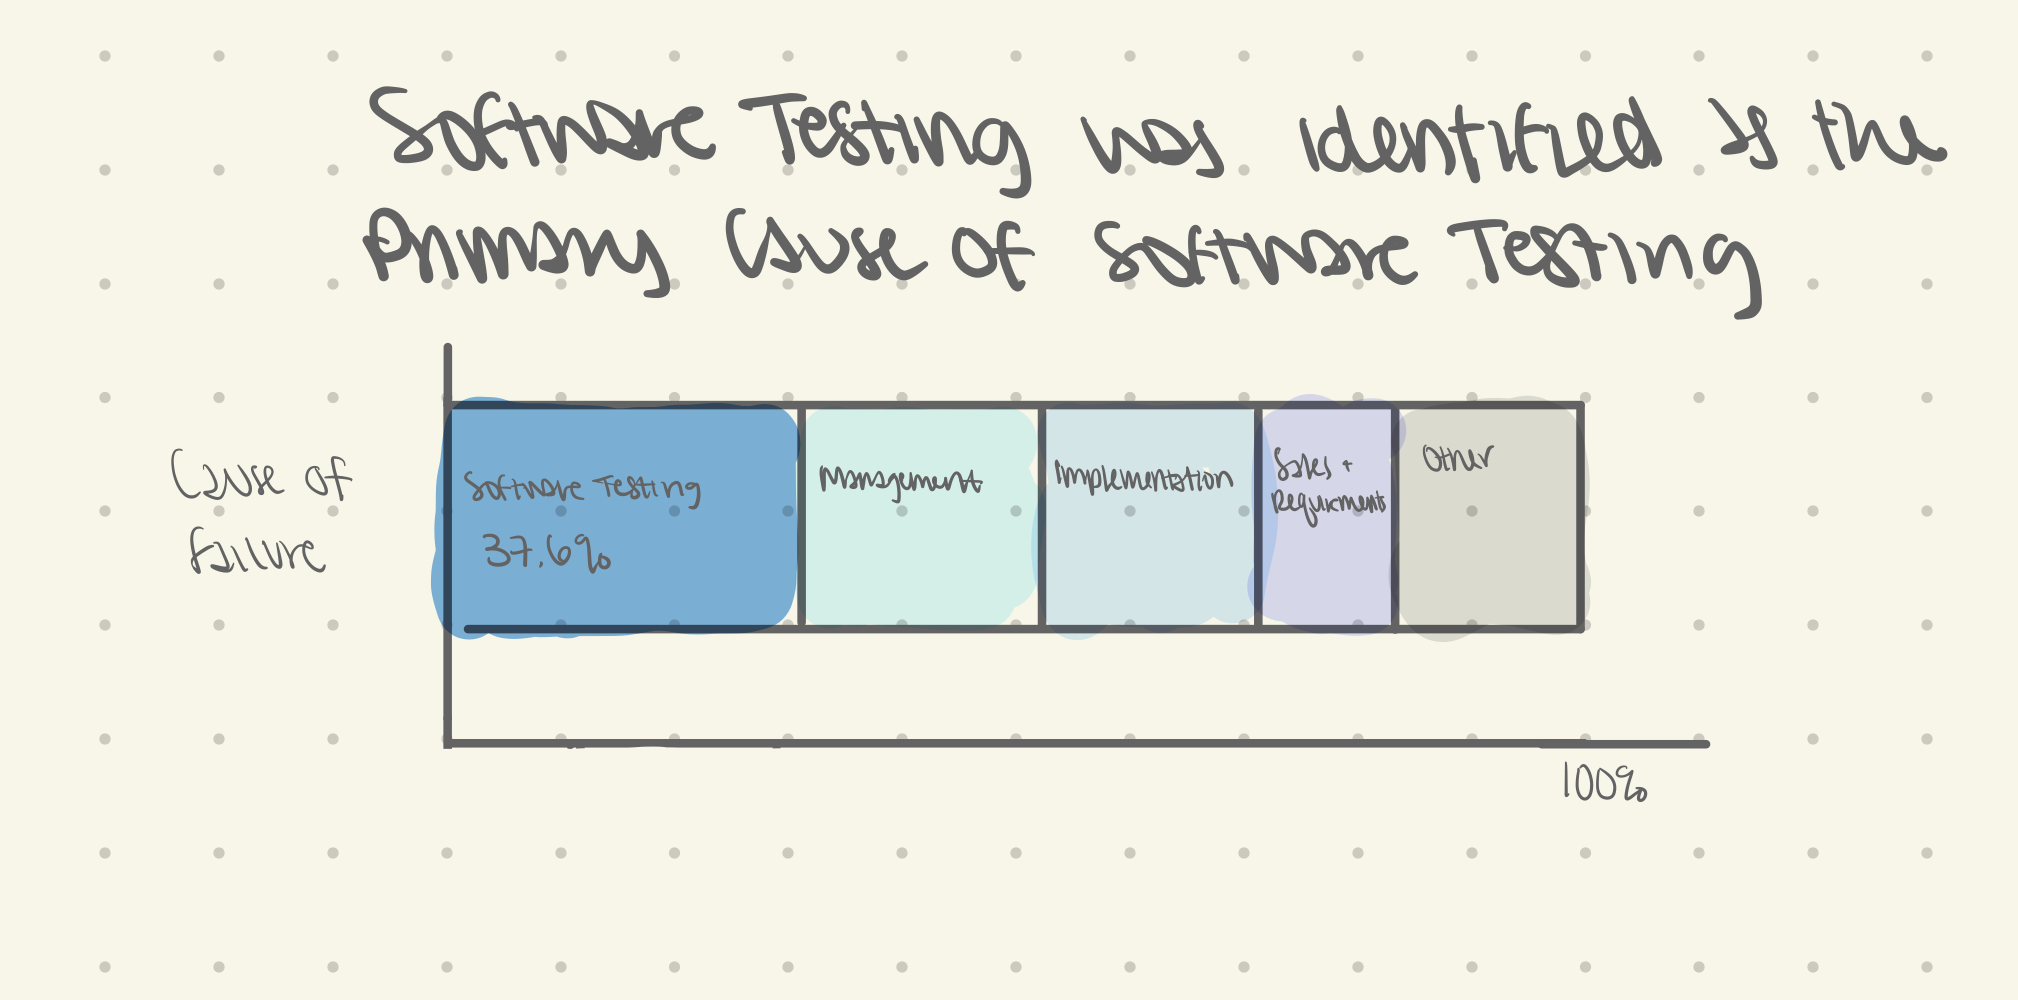 Software Testing was identified as the
Primary Cause of Software Testing
Cause of
failure
Software Testing
37.6%
Management
Implementation
Sales +
Requirements
Other
100%